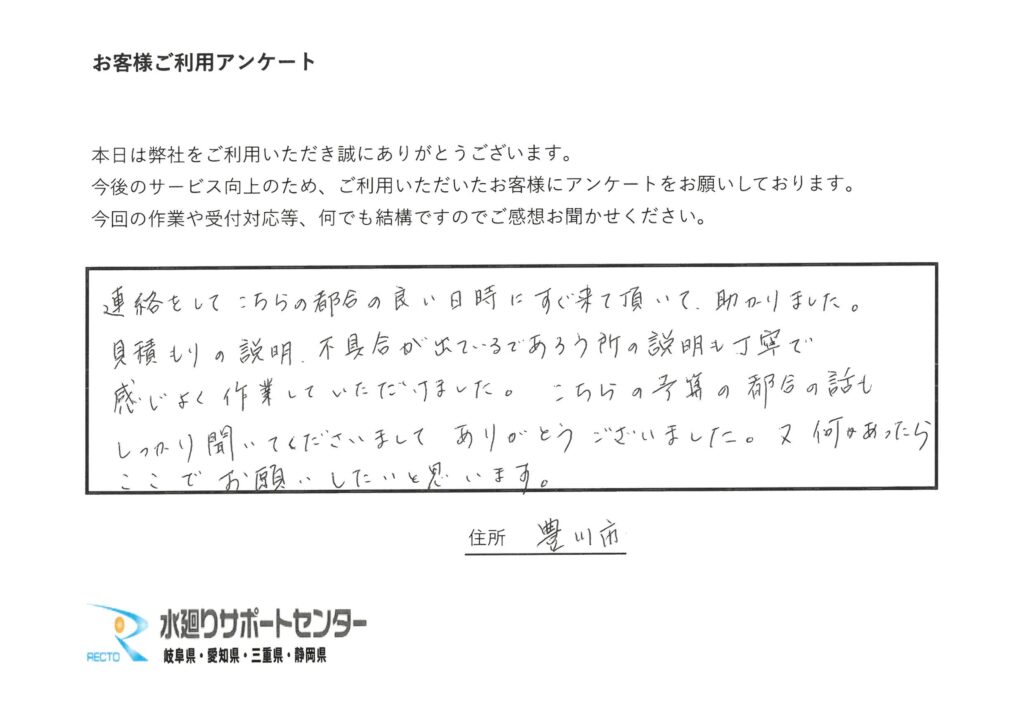 お客様ご利用アンケート
本日は弊社をご利用いただき誠にありがとうございます。
今後のサービス向上のため、ご利用いただいたお客様にアンケートをお願いしております。
今回の作業や受付対応等、何でも結構ですのでご感想お聞かせください。
連絡をして こちらの都合の良い日時にすぐ来て頂いて、助かりました。
見積もりの説明、不具合が出ているであろう所の説明も丁寧で
感じよく作業していただけました。 こちらの予算の都合の話も
しっかり聞いてくださいまして ありがとうございました。又何かあったら
ここでお願いしたいと思います。
住所 豊川市
RECTO 水廻りサポートセンター
岐阜県・愛知県・三重県・静岡県